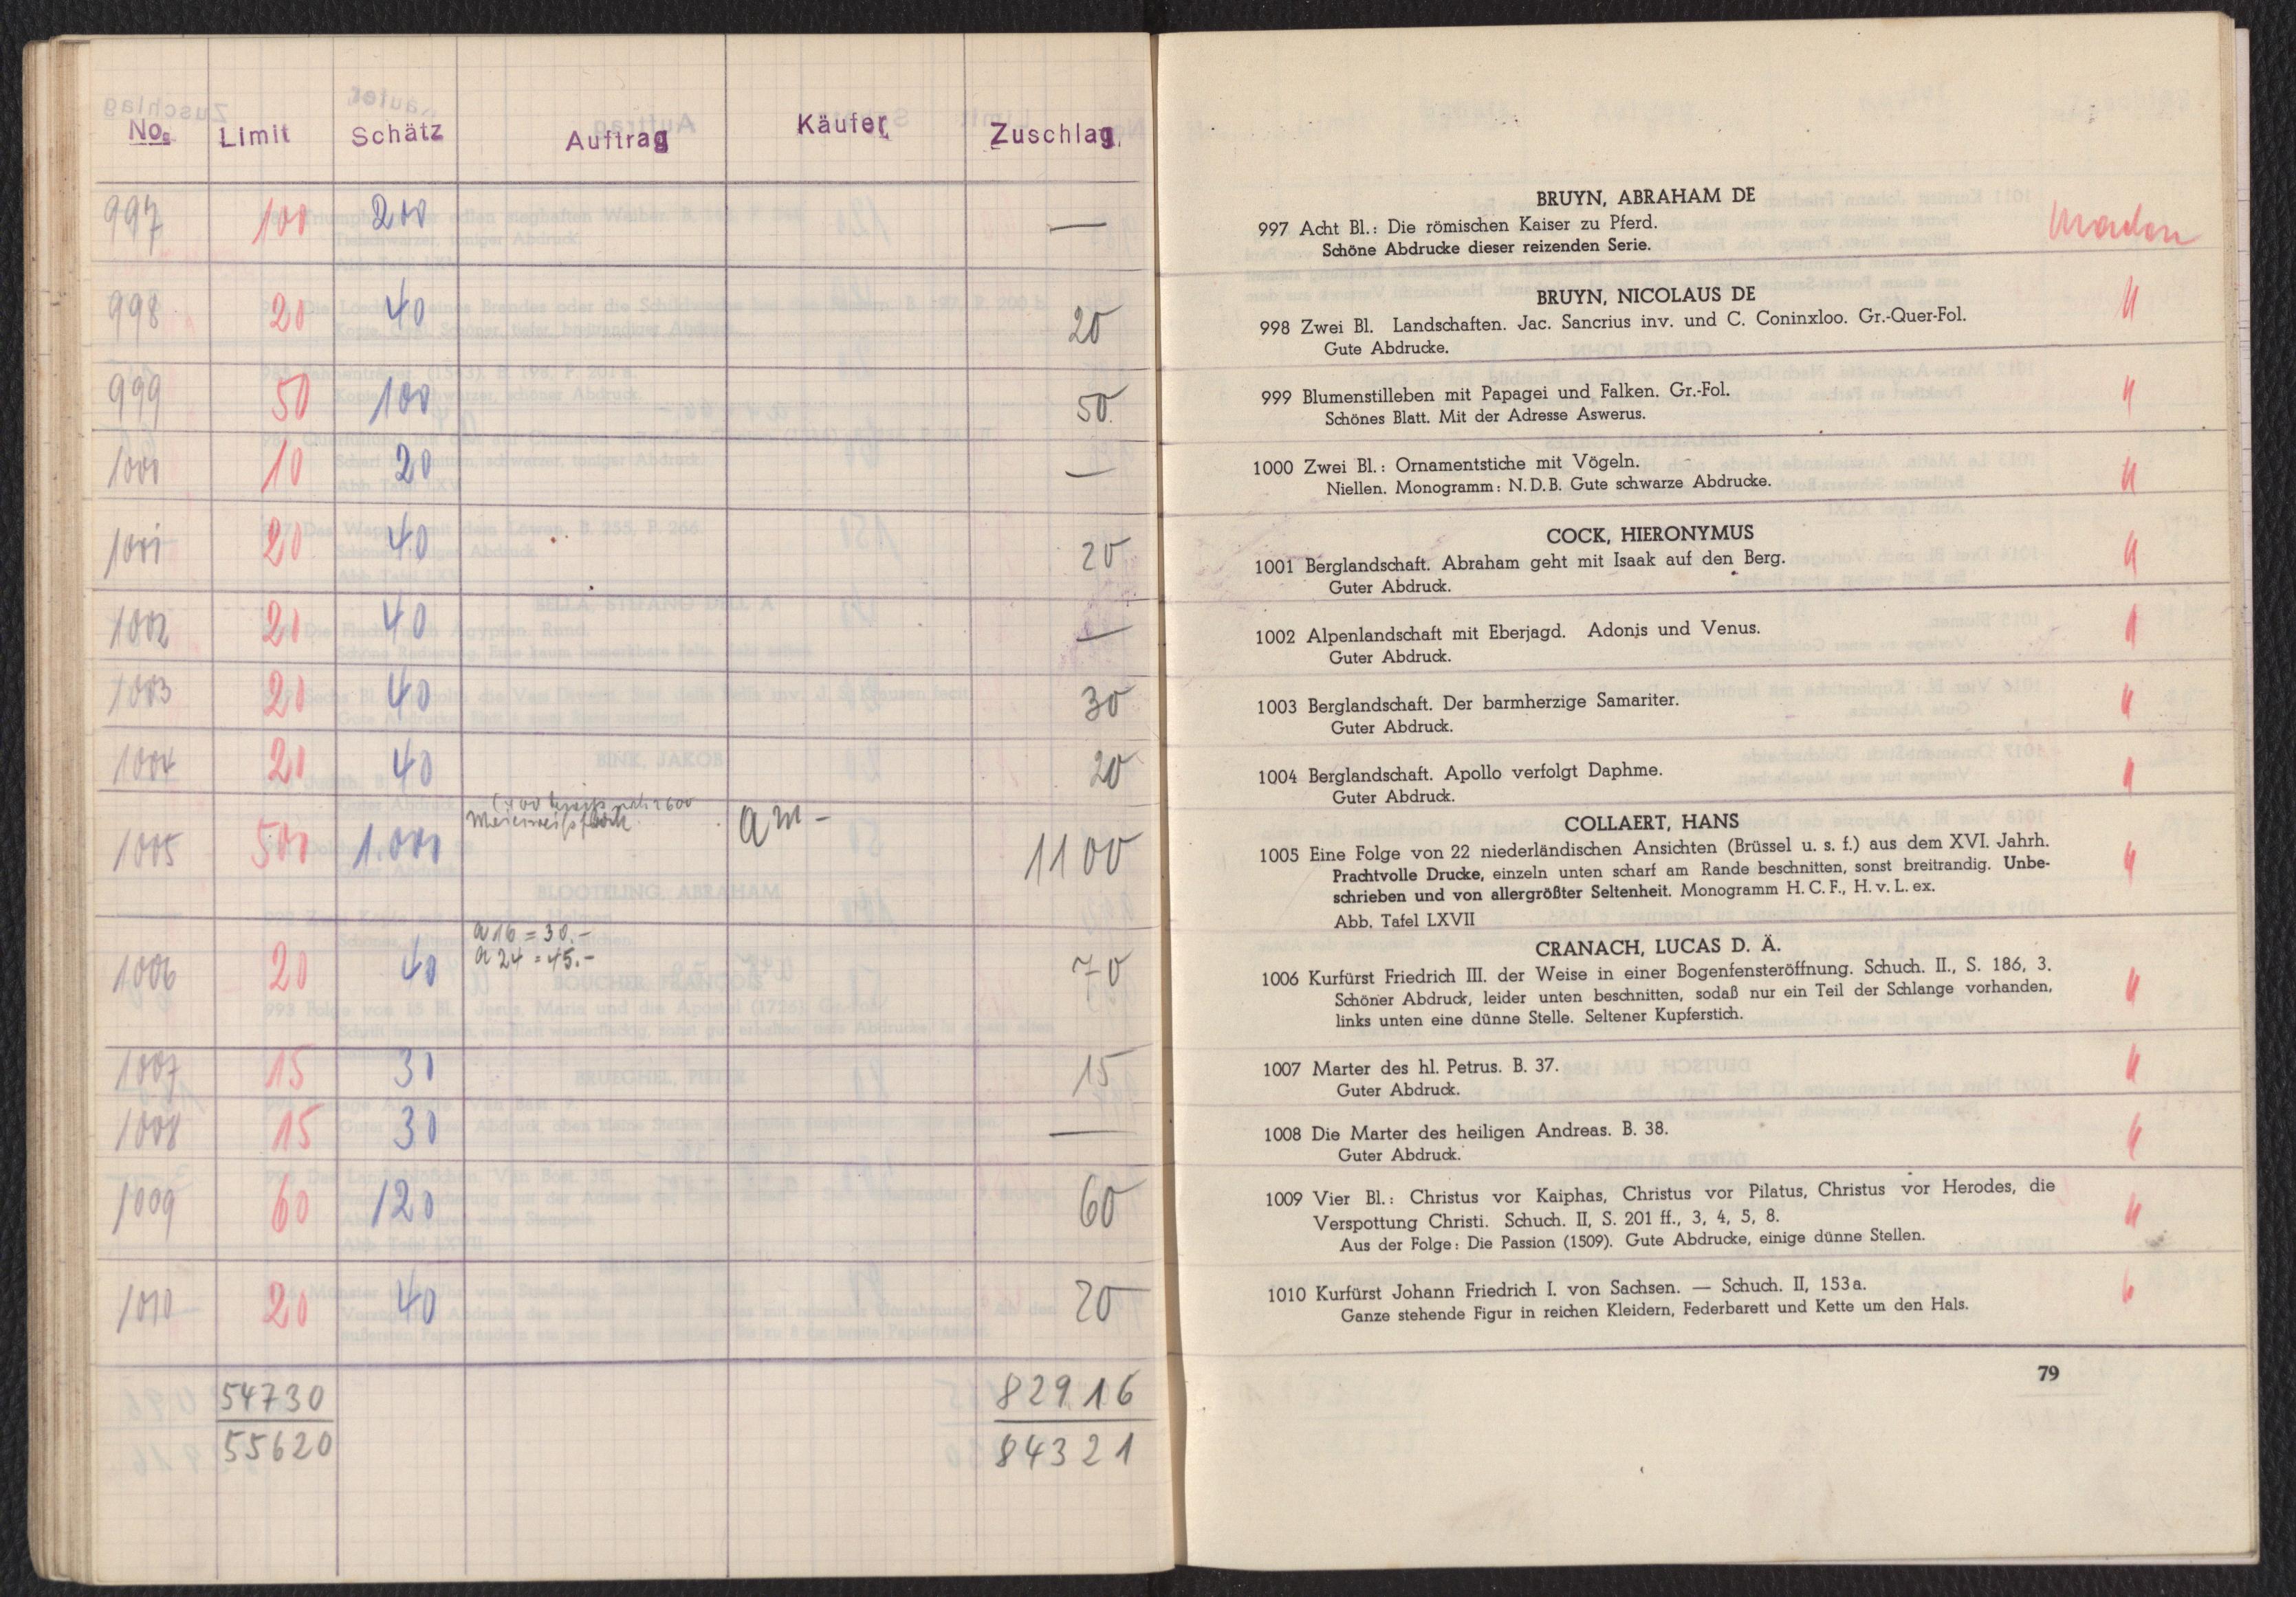 No. Limit Schätz Auftrag Käufer Zuschlag
997 100 200 —
998 20 40 20
999 50 100 50
1000 10 20 —
1001 20 40 20
1002 20 40 —
1003 20 40 30
1004 20 40 20
1005 500 1.000 am - 1100
a 16 = 30.-
1006 20 40 a 24 = 45.- 70
1007 15 30 15
1008 15 30 —
1009 60 120 60
1010 20 40 20
54730 82916
55620 84321
BRUYN, ABRAHAM DE
997 Acht Bl.: Die römischen Kaiser zu Pferd.
Schöne Abdrucke dieser reizenden Serie.
BRUYN, NICOLAUS DE
998 Zwei Bl. Landschaften. Jac. Sancrius inv. und C. Coninxloo. Gr.-Quer-Fol. "
Gute Abdrucke.
999 Blumenstilleben mit Papagei und Falken. Gr.-Fol. "
Schönes Blatt. Mit der Adresse Aswerus.
1000 Zwei Bl.: Ornamentstiche mit Vögeln. "
Niellen. Monogramm: N.D.B. Gute schwarze Abdrucke.
COCK, HIERONYMUS
1001 Berglandschaft. Abraham geht mit Isaak auf den Berg. "
Guter Abdruck.
1002 Alpenlandschaft mit Eberjagd. Adonis und Venus. "
Guter Abdruck.
1003 Berglandschaft. Der barmherzige Samariter. "
Guter Abdruck.
1004 Berglandschaft. Apollo verfolgt Daphme. "
Guter Abdruck.
COLLAERT, HANS
1005 Eine Folge von 22 niederländischen Ansichten (Brüssel u. s. f.) aus dem XVI. Jahrh. "
Prachtvolle Drucke, einzeln unten scharf am Rande beschnitten, sonst breitrandig. Unbe-
schrieben und von allergrößter Seltenheit. Monogramm H. C. F., H. v. L. ex.
Abb. Tafel LXVII
CRANACH, LUCAS D. Ä.
1006 Kurfürst Friedrich III. der Weise in einer Bogenfensteröffnung. Schuch. II., S. 186, 3. "
Schöner Abdruck, leider unten beschnitten, sodaß nur ein Teil der Schlange vorhanden,
links unten eine dünne Stelle. Seltener Kupferstich.
1007 Marter des hl. Petrus. B. 37. "
Guter Abdruck.
1008 Die Marter des heiligen Andreas. B. 38. "
Guter Abdruck.
1009 Vier Bl.: Christus vor Kaiphas, Christus vor Pilatus, Christus vor Herodes, die "
Verspottung Christi. Schuch. II, S. 201 ff., 3, 4, 5, 8.
Aus der Folge: Die Passion (1509). Gute Abdrucke, einige dünne Stellen.
1010 Kurfürst Johann Friedrich I. von Sachsen. — Schuch. II, 153a. "
Ganze stehende Figur in reichen Kleidern, Federbarett und Kette um den Hals.
79